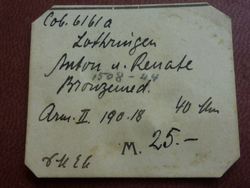 Cob. 6161a
Lothringen
Anton u. Renate
1508-44
Bronzemed.
Arm. II. 190.18 40 Mm
M. 25.-